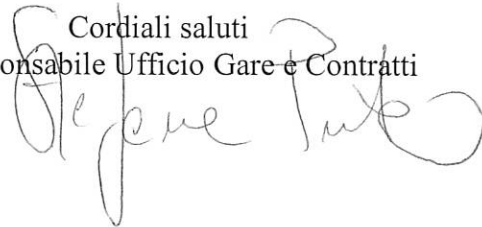 Cordiali saluti
onsabile Ufficio Gare e Contratti